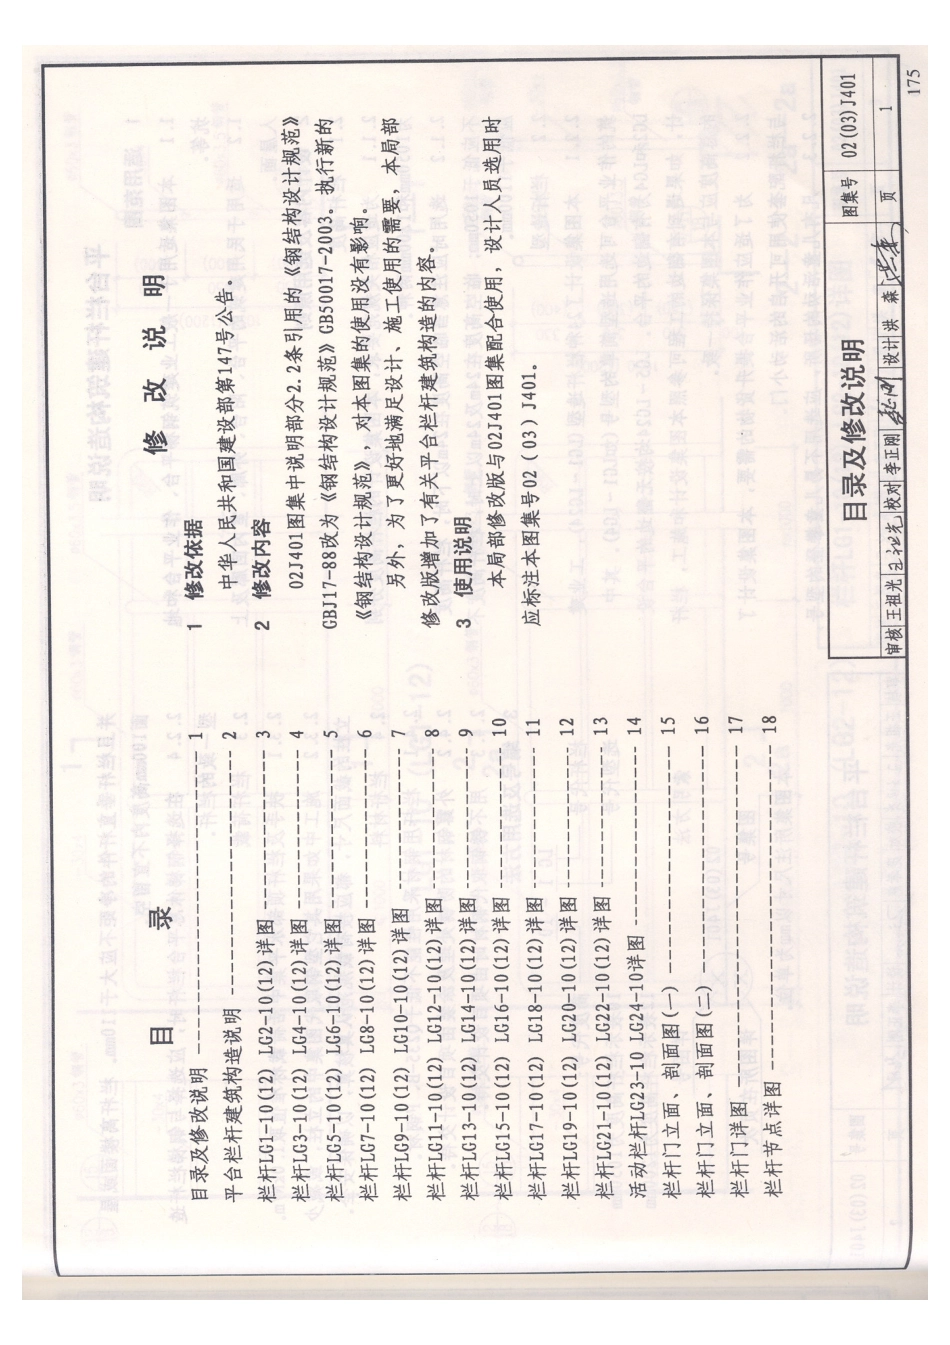 目 录
目录及修改说明 ---------------------- 1
平台栏杆建筑构造说明 ------------------ 2
栏杆LG1-10(12) LG2-10(12)详图 ---------- 3
栏杆LG3-10(12) LG4-10(12)详图 ---------- 4
栏杆LG5-10(12) LG6-10(12)详图 ---------- 5
栏杆LG7-10(12) LG8-10(12)详图 ---------- 6
栏杆LG9-10(12) LG10-10(12)详图 ---------- 7
栏杆LG11-10(12) LG12-10(12)详图 --------- 8
栏杆LG13-10(12) LG14-10(12)详图 --------- 9
栏杆LG15-10(12) LG16-10(12)详图 --------- 10
栏杆LG17-10(12) LG18-10(12)详图 --------- 11
栏杆LG19-10(12) LG20-10(12)详图 --------- 12
栏杆LG21-10(12) LG22-10(12)详图 --------- 13
活动栏杆LG23-10 LG24-10详图 ------------ 14
栏杆门立面、剖面图(一) ---------------- 15
栏杆门立面、剖面图(二) ---------------- 16
栏杆门详图 ------------------------ 17
栏杆节点详图 ---------------------- 18
修 改 说 明
1 修改依据
中华人民共和国建设部第147号公告。
2 修改内容
02J401图集中说明部分2.2条引用的《钢结构设计规范》
GBJ17-88改为《钢结构设计规范》GB50017-2003。执行新的
《钢结构设计规范》,对本图集的使用没有影响。
另外,为了更好地满足设计、施工使用的需要,本局部
修改版增加了有关平台栏杆建筑构造的内容。
3 使用说明
本局部修改版与02J401图集配合使用,设计人员选用时
应标注本图集号02(03)J401。
目录及修改说明
图集号 02(03)J401
审核 王祖光 校对 李正刚 设计 洪森 页 1
175